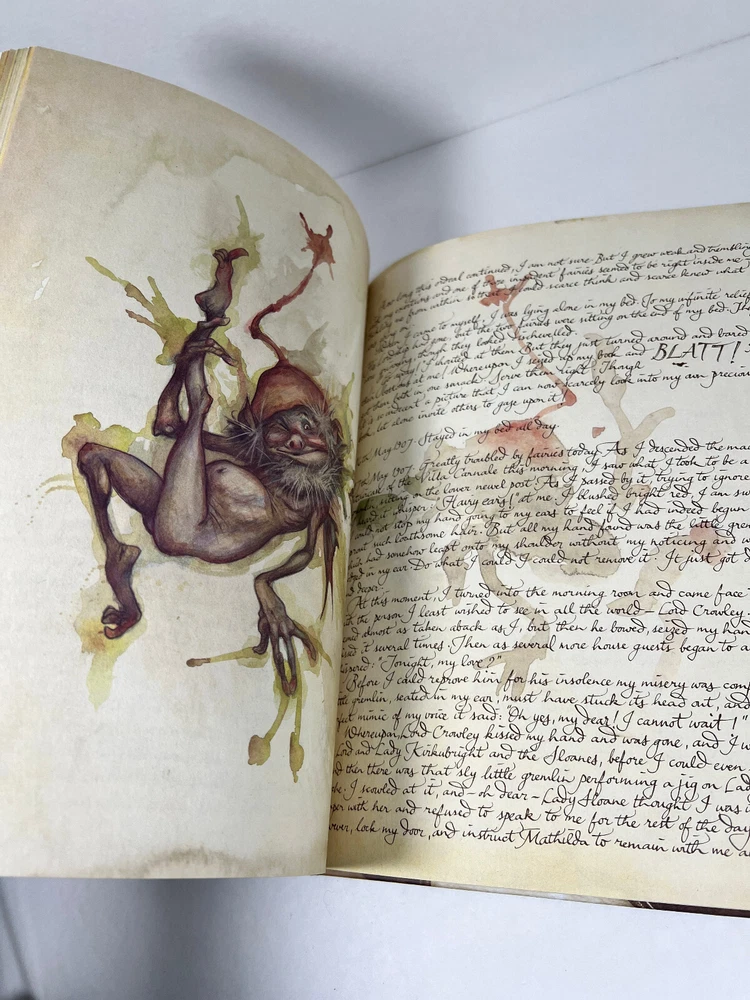 long this ordeal continued, I am not sure. But I grew weak and trembling
me of impudent fairies seemed to be right inside me
me from within so that I could scarce think and scarce knew what
to myself, I was lying alone in my bed. To my infinite relief
gone but the two fairies were sitting on the end of my bed. The
though they looked dishevelled.
I shouted at them. But they just turned around and bared
bottoms at me! Whereupon I seized up my book and BLATT!
them both in one smack. Serve them right! Though
is so indecent a picture that I can now scarcely look into my own precious
let alone invite others to gaze upon it!
May 1907. Stayed in my bed all day.
May 1907. Greatly troubled by fairies today. As I descended the
of the Villa Carnale this morning, I saw what I took to be a
sitting on the lower newel post. As I passed by it, trying to ignore
it whisper: "Hairy ears!" at me. I blushed bright red. I am
not stop my hand going to my ears to feel if I had indeed begun
sprout such loathsome hair. But all my hand found was the little
had somehow leapt onto my shoulder without my noticing and
in my ear. Do what I could I could not remove it. It just got
deeper.
At this moment, I turned into the morning room and came face
the person I least wished to see in all the world – Lord Crowley.
almost as taken aback as I, but then he bowed, seized my hand
it several times. Then as several more house guests began to
"Tonight, my love?"
Before I could reprove him for his insolence my misery was
little gremlin, seated in my ear, must have stuck its head out, and
perfect mimic of my voice it said: "Oh yes, my dear! I cannot wait!"
Whereupon Lord Crowley kissed my hand and was gone, and I
Lord and Lady Kirkubright and the Sloanes, before I could even
then there was that sly little gremlin performing a jig on
I scowled at it, and – oh dear – Lady Sloane thought I was
with her and refused to speak to me for the rest of the day
lock my door, and instruct Mathilda to remain with me